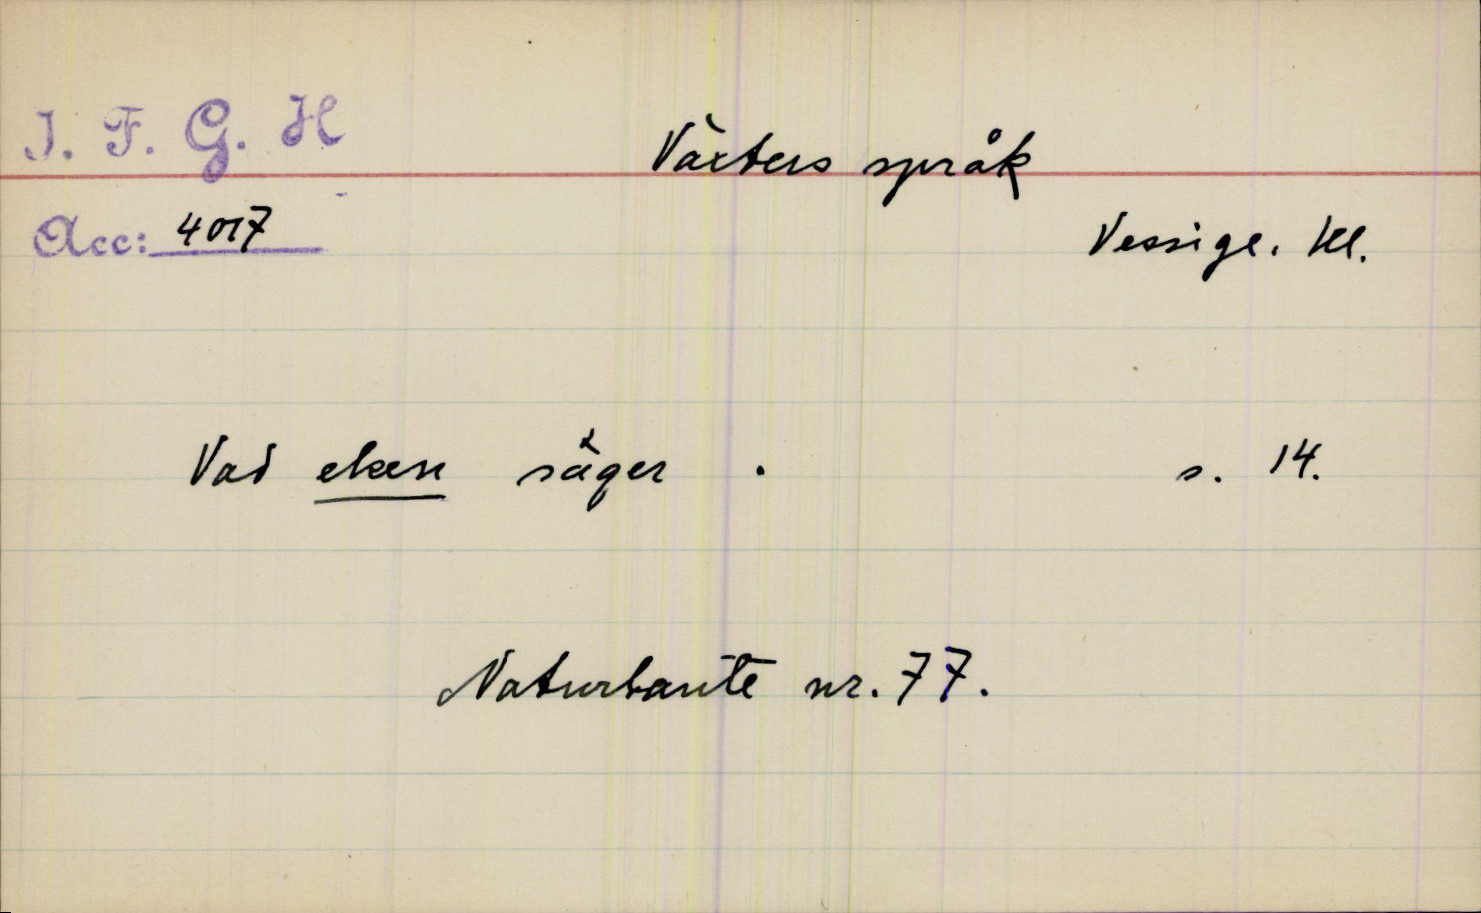 I. F. G. H
Växters språk
Acc: 4017
Vessige. Hl.
Vad eken säger . s. 14.
Naturtante nr. 77.